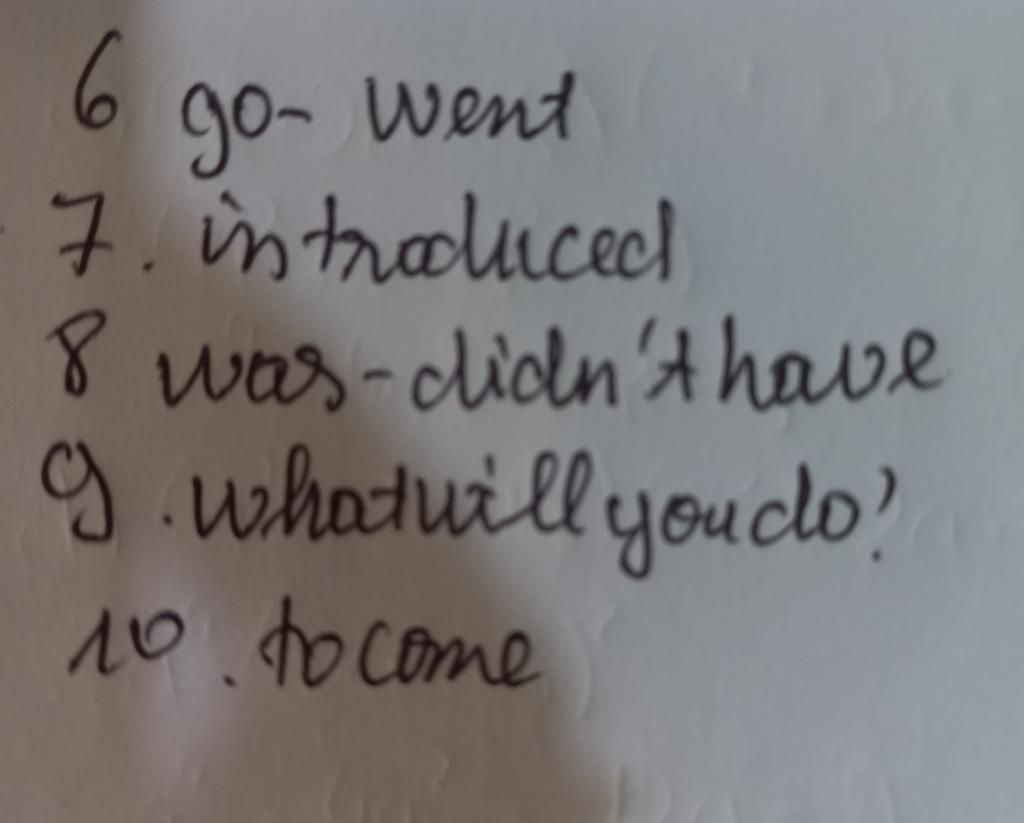 6 go- went
7. introduced
8 was-didn't have
9. what will you do?
10. to come